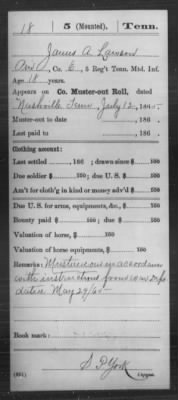 18 | 5 (Mounted). | Tenn.
James A Lawson
, Co. E, 5 Reg't Tenn. Mtd. Inf.
Age 18 years.
Appears on Co. Muster-out Roll, dated
Nashville Tenn, July 12, 1865.
Muster-out to date , 186 .
Last paid to , 186 .
Clothing account:
Last settled , 186 ; drawn since $ 100
Due soldier $ 100; due U. S. $ 100
Am't for cloth'g in kind or money adv'd $ 100
Due U. S. for arms, equipments, &c., $ 100
Bounty paid $ 100; due $ 100
Valuation of horse, $ 100
Valuation of horse equipments, $ 100
Remarks: Mustered out in accordance
with instructions from War Dept
dated May 29/65
Book mark:
S. P. York
(861) Copyist.